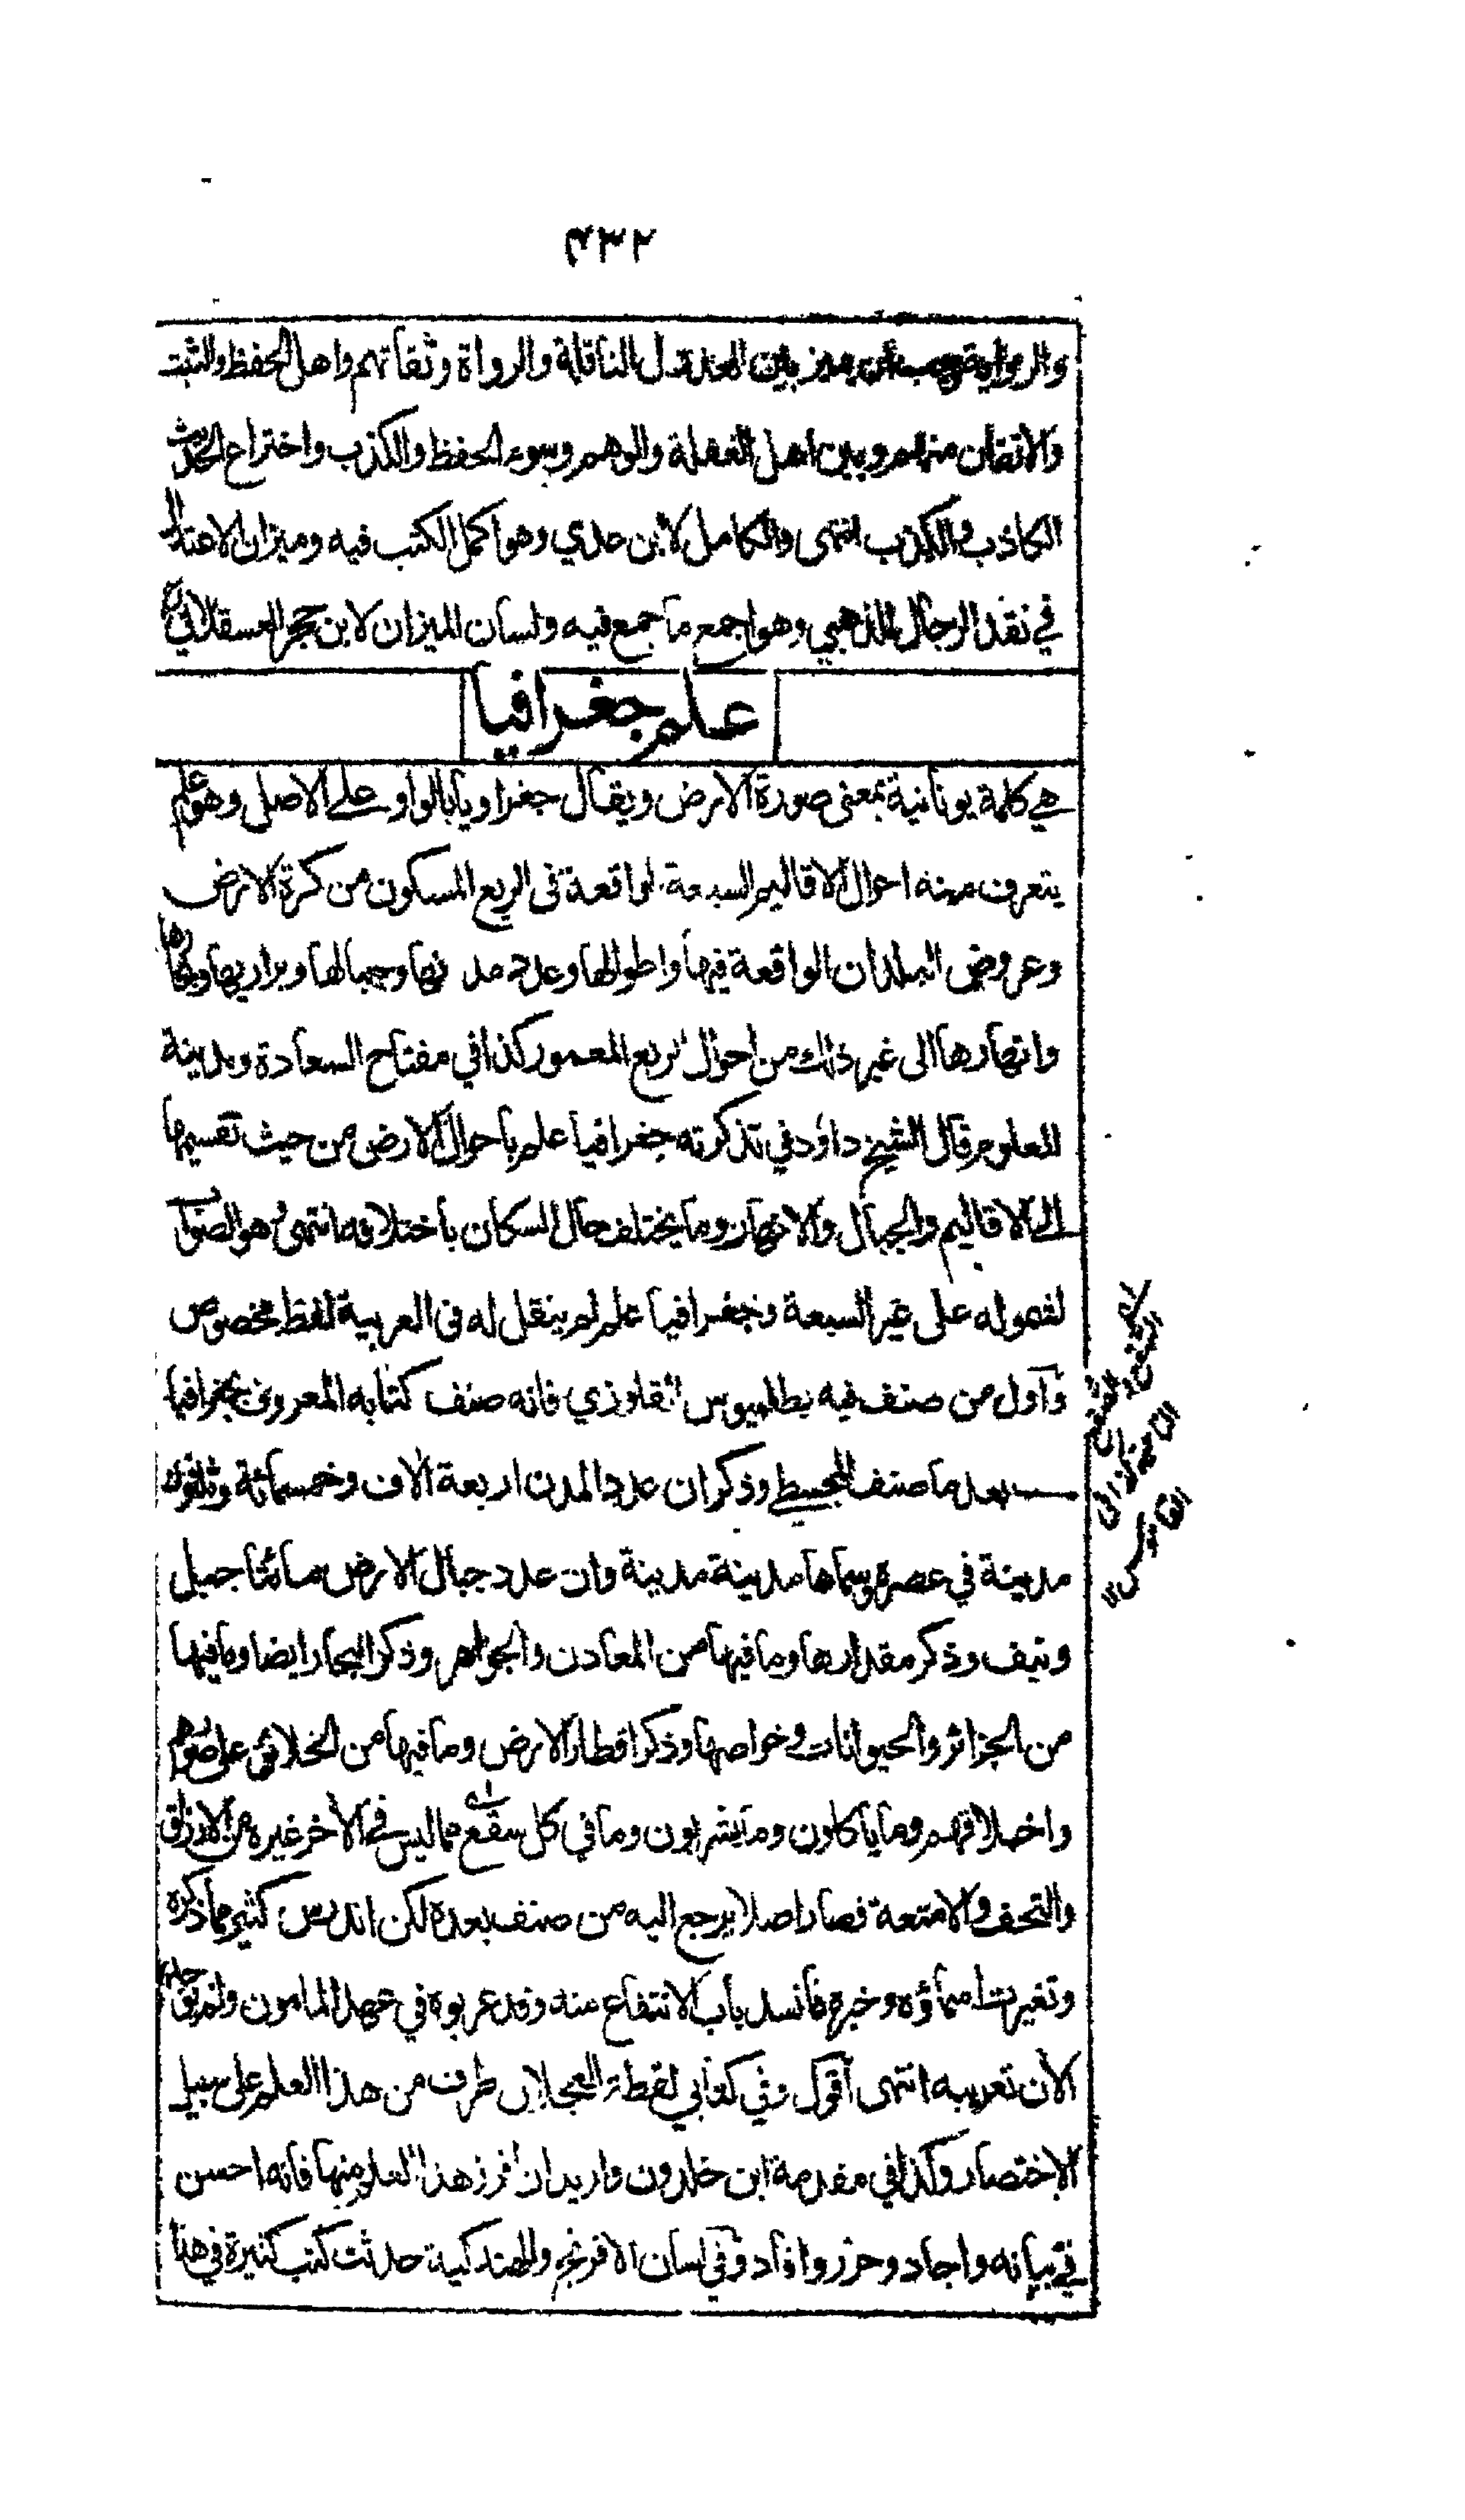 ٤٣٢
والرواية وجب أن يميز بين العدول الناقلة والرواة وثقاتهم واهل الحفظ والثبت
والاتقان منهم وبين اهل الغفلة والوهم وسوء الحفظ والكذب واختراع الحديث
الكاذب والكذب انتهى والكامل لابن عدي وهو اكمل الكتب فيه وميزان الاعتدال
في نقد الرجال للذهبي وهو اجمع ما جمع فيه ولسان الميزان لابن حجر العسقلاني
علم جغرافيا
هي كلمة يونانية بمعنى صورة الارض ويقال جغراويا بالواو على الاصل وهو علم
يتعرف منه احوال الاقاليم السبعة الواقعة في الربع المسكون من كرة الارض
وعروض البلدان الواقعة فيها واطوالها وعدد مدنها وجبالها وبراريها وبحارها
وانهارها الى غير ذلك من احوال الربع المعمور كذا في مفتاح السعادة ومدينة
العلوم قال الشيخ داؤد في تذكرته جغرافيا علم باحوال الارض من حيث تقسيمها
الى الاقاليم والجبال والانهار وما يختلف حال السكان باختلافه انتهى وهو الصواب
لشموله على غير السبعة وجغرافيا علم لم ينقل له في العربية لفظ مخصوص
وآول من صنف فيه بطلميوس القلوذي فانه صنف كتابه المعروف بجغرافيا
بعد ما صنف المجسطي وذكر ان عدد المدن اربعة آلاف وخمسمائة وثلثون
مدينة في عصره وسماها مدينة مدينة وان عدد جبال الارض مائتا جبل
ونيف وذكر مقدارها وما فيها من المعادن والجواهر وذكر البحار ايضا وما فيها
من الجزائر والحيوانات وخواصها وذكر اقطار الارض وما فيها من الخلائق على صورهم
واخلاقهم وما ياكلون وما يشربون وما في كل سقع مما ليس في الآخر غيره من الارزاق
والتحف والامتعة فصار اصلا يرجع اليه من صنف بعده لكن اندرس كثير مما ذكره
وتغيرت اسماؤه وخبره فانسد باب الانتفاع منه وقد عربوه في عهد المامون ولم يوجد
الآن تعريبه انتهى آقول وفي كتابي لقطة العجلان طرف من هذا العلم على سبيل
الاختصار وكذا في مقدمة ابن خلدون واريد ان افرز هذا العلم منها فانه احسن
في بيانه واجاد وحرر وافاد وفي لسان الافرنج والهند كية حدثت كتب كثيرة في هذا